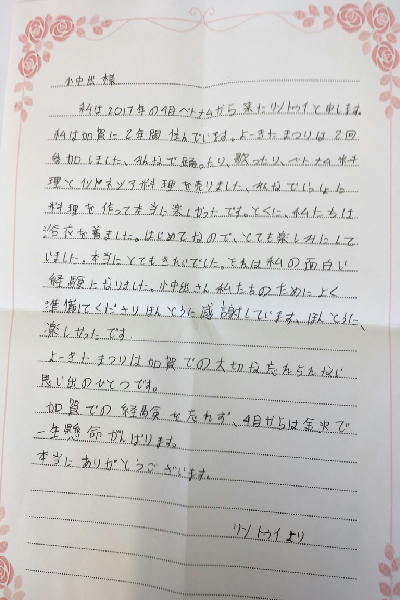 小中出様
私は2017年の4月ベトナムから来たリントゥイと申します。
私は加賀に2年間住んでいます。よーきたまつりは2回
参加しました、みんなで踊ったり、歌ったり、ベトナム料
理とインドネシア料理を売りました、みんなでいっしょに
料理を作って本当に楽しかったです。とくに、私たちは
浴衣を着ました。はじめてなので、とても楽しみにして
いました。本当にとてもきれいでした。それは私の面白い
経験になりました。小中出さん私たちのためによく
準備してくださりほんとうに感謝しています。ほんとうに、
楽しかったです。
よーきたまつりは加賀での大切な忘れられない
思い出のひとつです。
加賀での経験を忘れず、4月からは金沢で
一生懸命がんばります。
本当にありがとうございます。
リン トゥイ より